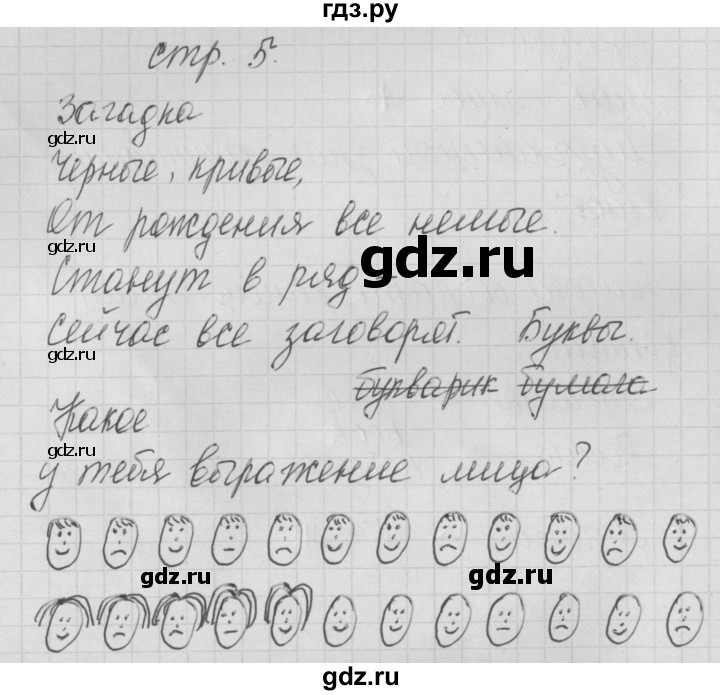 гдз.ру
стр. 5.
Загадка
gdz.ru
Черные, кривые,
gdz.ru
От рождения все немые.
gdz.ru
gdz.ru
Станут в ряд -
Сейчас все заговорят. Буквы.
gdz.ru
букварик бумага
Какое
gdz.ru
у тебя выражение лица?
gdz.ru
gdz.ru
gdz.ru